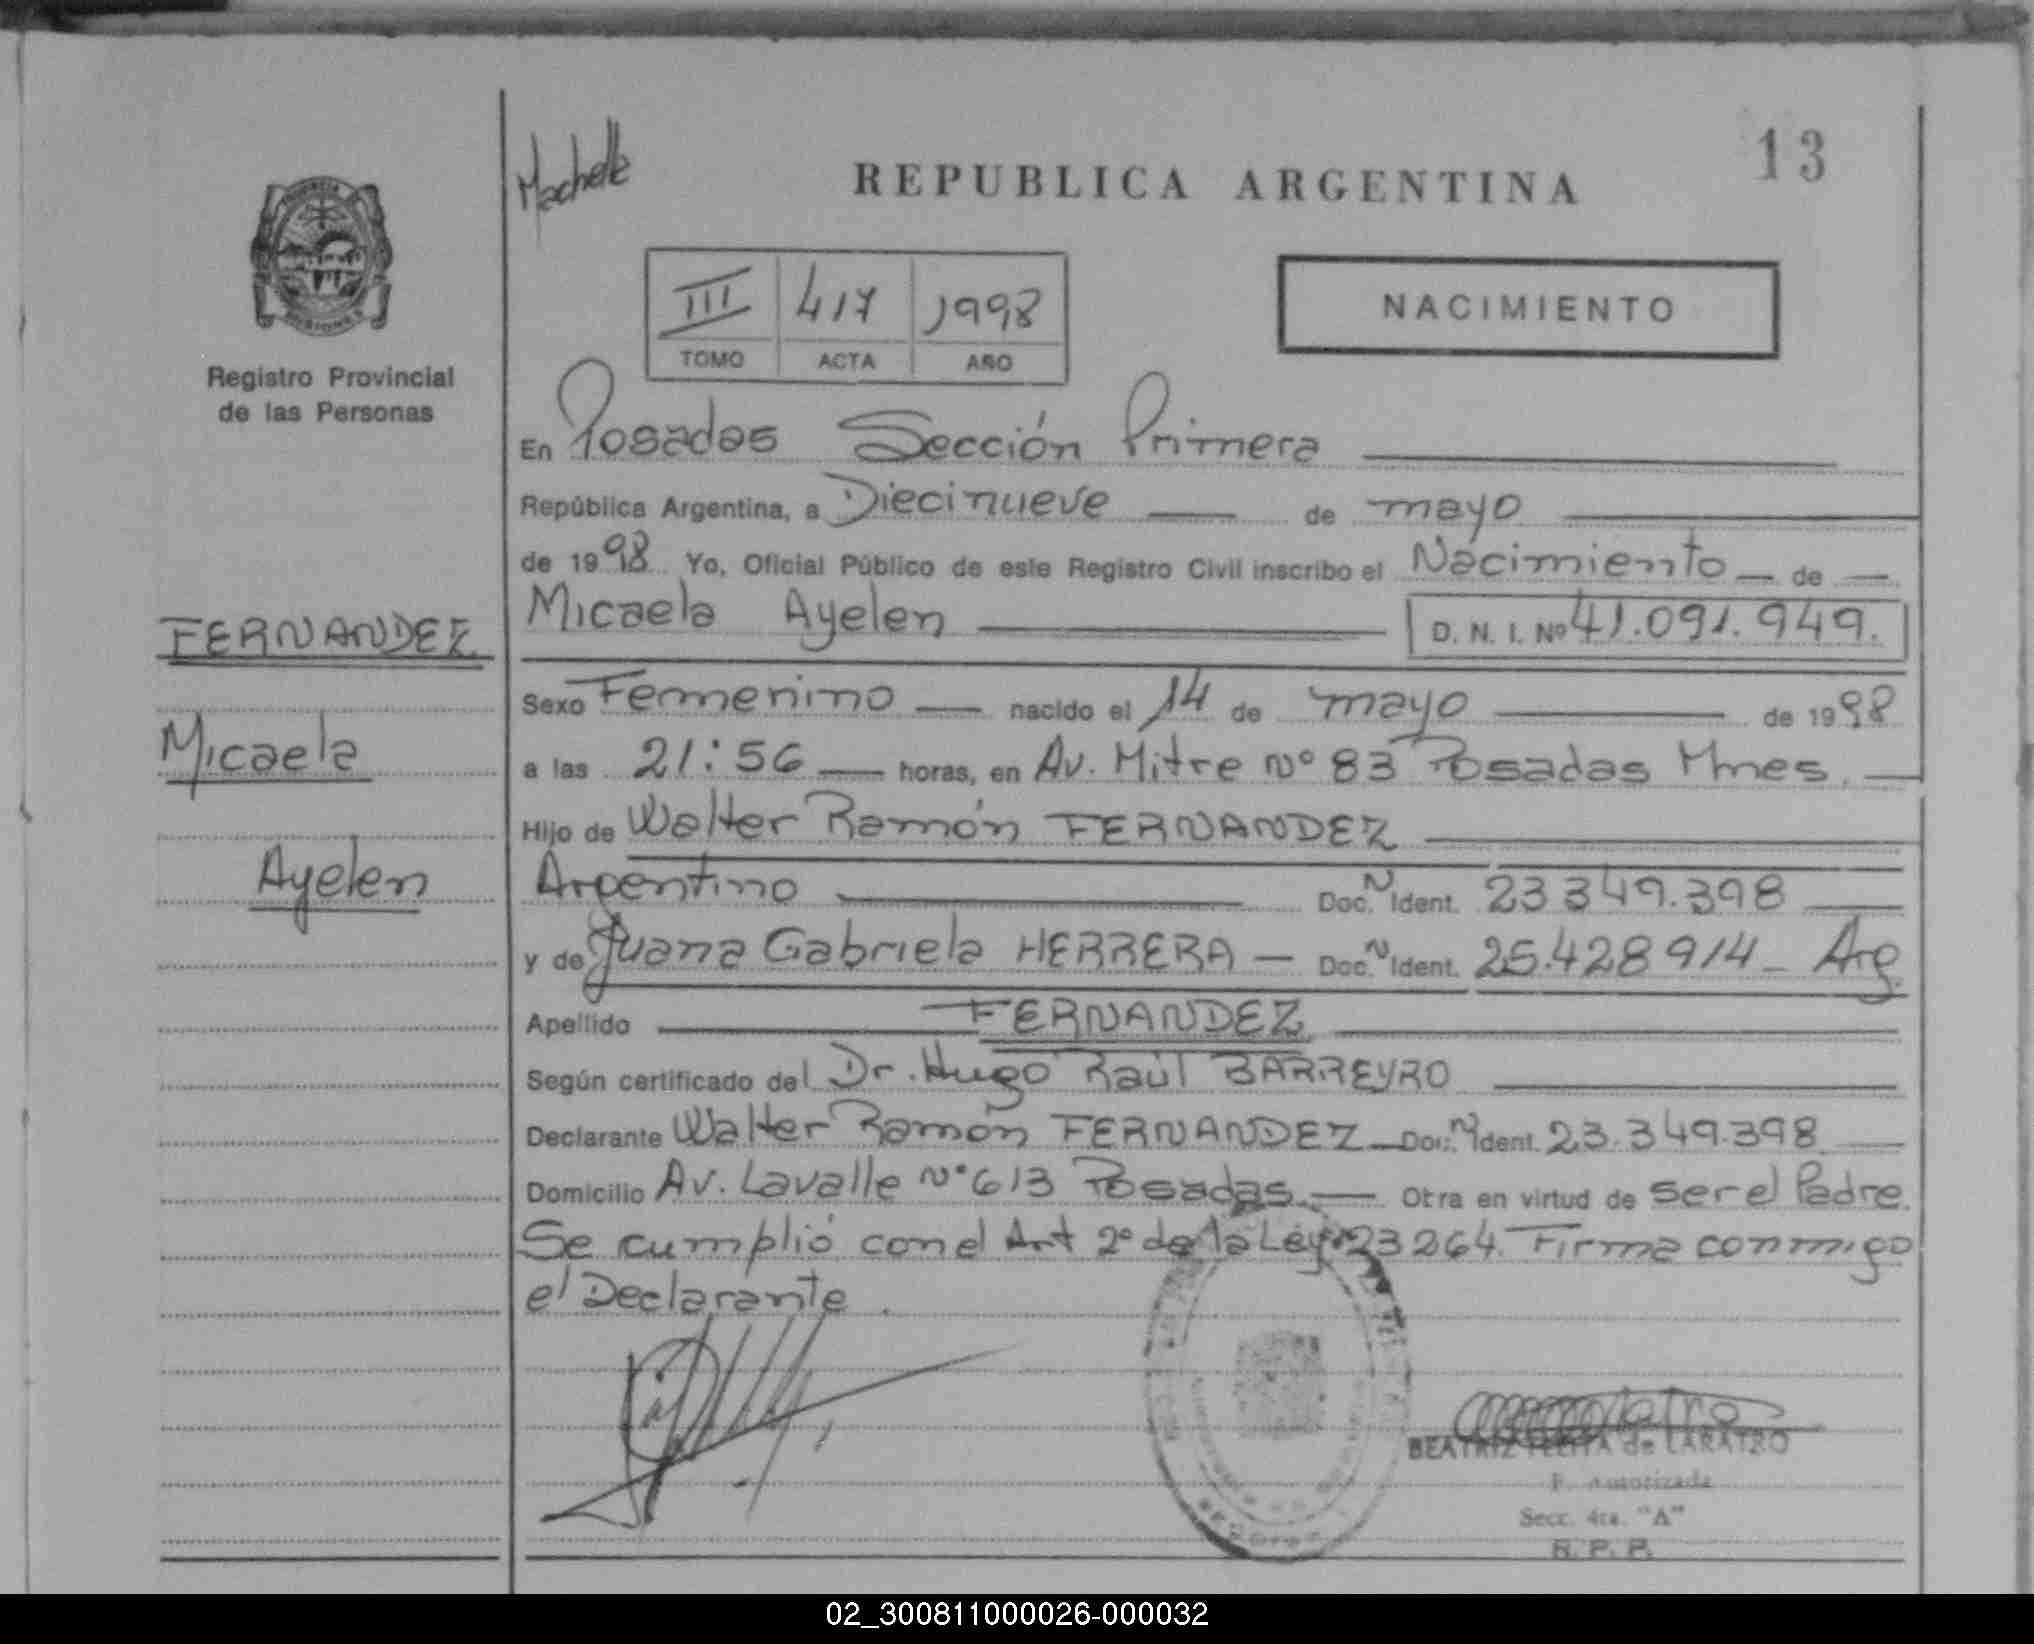 Machelle
REPUBLICA ARGENTINA
13
III 417 1998
TOMO ACTA AÑO
NACIMIENTO
Registro Provincial
de las Personas
En Posadas Sección Primera
República Argentina, a Diecinueve de mayo
de 1998 Yo, Oficial Público de este Registro Civil inscribo el Nacimiento de
Micaela Ayelen D. N. I. Nº 41.091.949.
FERNANDEZ
Micaela
Ayelen
Sexo Femenino nacido el 14 de mayo de 1998
a las 21:56 horas, en Av. Mitre Nº 83 Posadas Mnes.
Hijo de Walter Ramón FERNANDEZ
Argentino Doc. N Ident. 23 349.398
y de Juana Gabriela HERRERA Doc. N Ident. 25.428 914 Arg
Apellido FERNANDEZ
Según certificado del Dr. Hugo Raúl BARREYRO
Declarante Walter Ramón FERNANDEZ Doc. N Ident. 23.349.398
Domicilio Av. Lavalle Nº 613 Posadas. Otra en virtud de ser el Padre.
Se cumplió con el Art 2º de la Ley 23264. Firma conmigo
el Declarante.
BEATRIZ de LARATRO
F. Autorizada
Secc. 4ta. "A"
R. P. P.
02_300811000026-000032